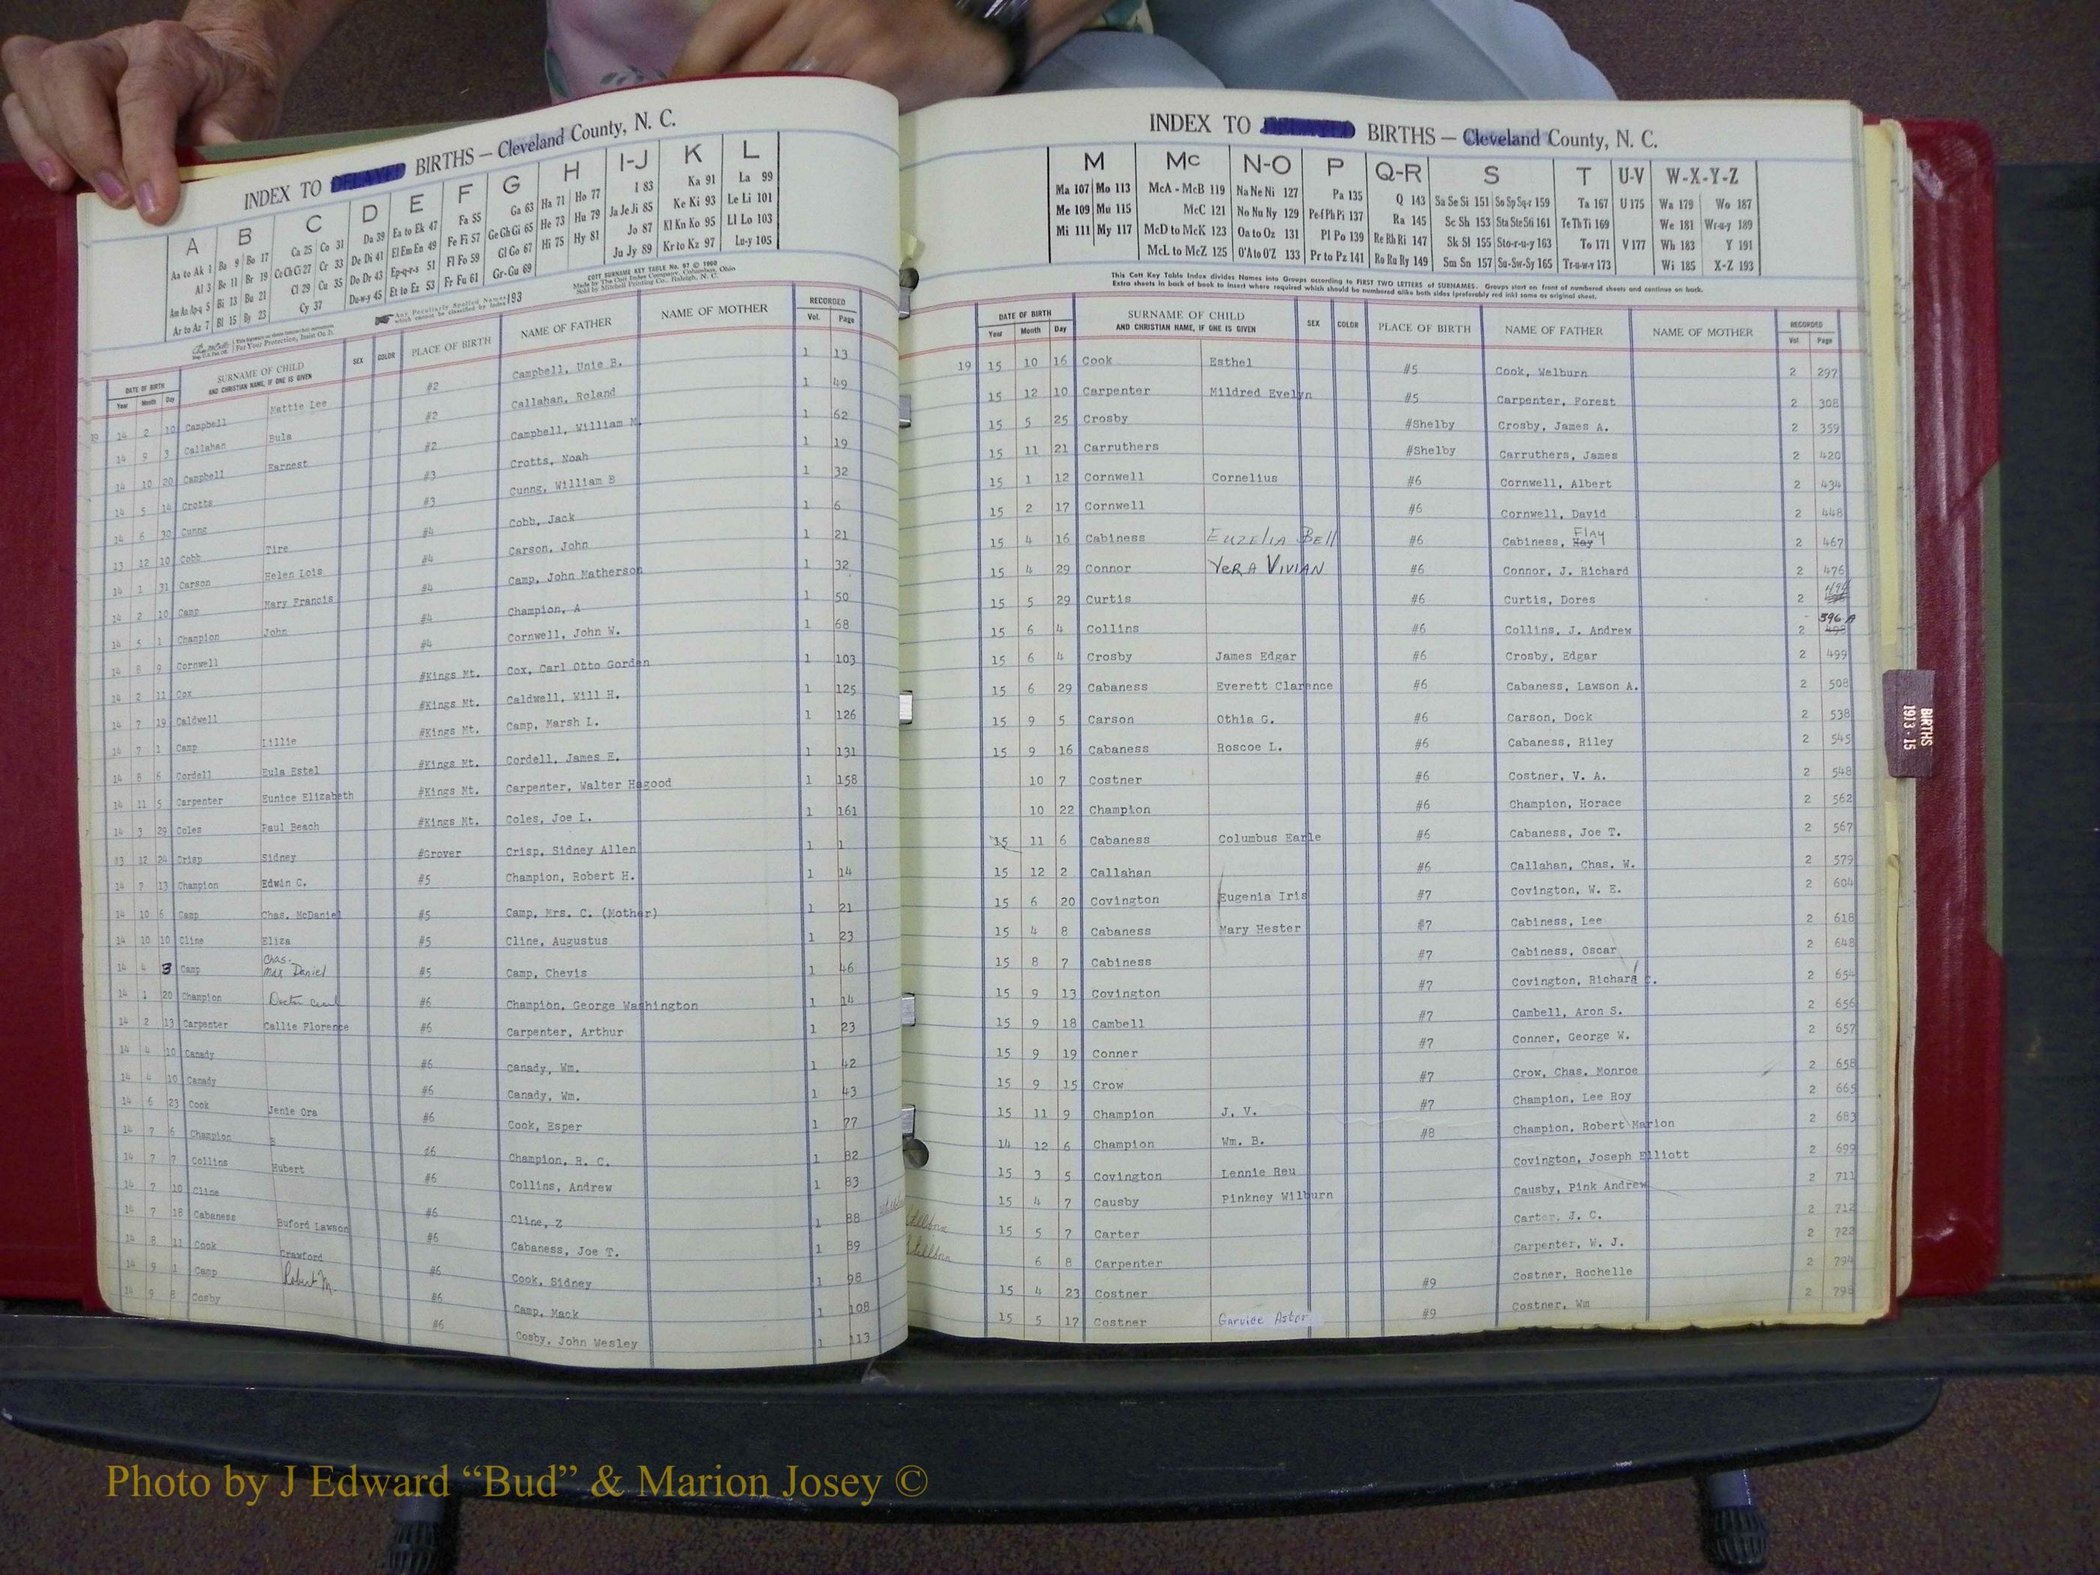 INDEX TO DELAYED BIRTHS — Cleveland County, N. C.
A B C D E F G H I-J K L
Aa to Ak 1 Ba 9 Bo 17 Ca 25 Co 31 Da 39 Ea to Ek 47 Fa 55 Ga 63 Ha 71 Ho 77 I 83 Ka 91 La 99
Al 3 Be 11 Br 19 Ce Ch Ci 27 Cr 33 De Di 41 El Em En 49 Fe Fi 57 Ge Gh Gi 65 He 73 Hu 79 Ja Je Ji 85 Ke Ki 93 Le Li 101
Am An Ap-q 5 Bi 13 Bu 21 Cl 29 Cu 35 Do Dr 43 Ep-q-r-s 51 Fl Fo 59 Gl Go 67 Hi 75 Hy 81 Jo 87 Kl Kn Ko 95 Ll Lo 103
Ar to Az 7 Bl 15 By 23 Cy 37 Du-w-y 45 Et to Ez 53 Fr Fu 61 Gr-Gu 69 Ju Jy 89 Kr to Kz 97 Lu-y 105
Any Peculiarly Spelled Names which cannot be classified by Index 193
COTT SURNAME KEY TABLE No. 97 © 1960
Made by The Cott Index Company, Columbus, Ohio
Sold by Mitchell Printing Co., Raleigh, N. C.
DATE OF BIRTH SURNAME OF CHILD SEX COLOR PLACE OF BIRTH NAME OF FATHER NAME OF MOTHER RECORDED
Year Month Day AND CHRISTIAN NAME, IF ONE IS GIVEN Vol. Page
19 14 2 10 Campbell Mattie Lee #2 Campbell, Unie B. 1 13
14 9 3 Callahan Bula #2 Callahan, Roland 1 49
14 10 20 Campbell Earnest #2 Campbell, William M. 1 62
14 5 14 Crotts #3 Crotts, Noah 1 19
14 6 30 Cunng #3 Cunng, William B 1 32
13 12 10 Cobb Tire #4 Cobb, Jack 1 6
14 1 31 Carson Helen Lois #4 Carson, John 1 21
14 2 10 Camp Mary Francis #4 Camp, John Matherson 1 32
14 5 1 Champion John #4 Champion, A 1 50
14 8 9 Cornwell #4 Cornwell, John W. 1 68
14 2 11 Cox #Kings Mt. Cox, Carl Otto Gorden 1 103
14 7 19 Caldwell #Kings Mt. Caldwell, Will H. 1 125
14 7 1 Camp Lillie #Kings Mt. Camp, Marsh L. 1 126
14 8 6 Cordell Eula Estel #Kings Mt. Cordell, James E. 1 131
14 11 5 Carpenter Eunice Elizabeth #Kings Mt. Carpenter, Walter Hagood 1 158
14 3 29 Coles Paul Beach #Kings Mt. Coles, Joe L. 1 161
13 12 24 Crisp Sidney #Grover Crisp, Sidney Allen 1 1
14 7 13 Champion Edwin C. #5 Champion, Robert H. 1 14
14 10 6 Camp Chas. McDaniel #5 Camp, Mrs. C. (Mother) 1 21
14 10 10 Cline Eliza #5 Cline, Augustus 1 23
14 4 3 Camp Chas. Max Daniel #5 Camp, Chevis 1 46
14 1 20 Champion Doctor #6 Champion, George Washington 1 14
14 2 13 Carpenter Callie Florence #6 Carpenter, Arthur 1 23
14 4 10 Canady #6 Canady, Wm. 1 42
14 4 10 Canady #6 Canady, Wm. 1 43
14 6 23 Cook Jenie Ora #6 Cook, Esper 1 77
14 7 6 Champion B 26 Champion, R. C. 1 82
14 7 7 Collins Hubert #6 Collins, Andrew 1 83
14 7 10 Cline #6 Cline, Z 1 88
14 7 18 Cabaness Buford Lawson #6 Cabaness, Joe T. 1 89
14 8 11 Cook Crawford #6 Cook, Sidney 1 98
14 9 1 Camp Robert M. #6 Camp, Mack 1 108
14 9 8 Cosby #6 Cosby, John Wesley 1 113
INDEX TO DELAYED BIRTHS — Cleveland County, N. C.
M Mc N-O P Q-R S T U-V W-X-Y-Z
Ma 107 Mo 113 McA - McB 119 Na Ne Ni 127 Pa 135 Q 143 Sa Se Si 151 So Sp Sq-r 159 Ta 167 U 175 Wa 179 Wo 187
Me 109 Mu 115 McC 121 No Nu Ny 129 Pe-f Ph Pi 137 Ra 145 Sc Sh 153 Sta Ste Sti 161 Te Th Ti 169 We 181 Wr-u-y 189
Mi 111 My 117 McD to McK 123 Oa to Oz 131 Pl Po 139 Re Rh Ri 147 Sk Sl 155 Sto-r-u-y 163 To 171 V 177 Wh 183 Y 191
McL to McZ 125 O'A to O'Z 133 Pr to Pz 141 Ro Ru Ry 149 Sm Sn 157 Su-Sw-Sy 165 Tr-u-w-y 173 Wi 185 X-Z 193
This Cott Key Table Index divides Names into Groups according to FIRST TWO LETTERS of SURNAMES. Groups start on front of numbered sheets and continue on back.
Extra sheets in back of book to insert where required which should be numbered alike both sides (preferably red ink) same as original sheet.
DATE OF BIRTH SURNAME OF CHILD SEX COLOR PLACE OF BIRTH NAME OF FATHER NAME OF MOTHER RECORDED
Year Month Day AND CHRISTIAN NAME, IF ONE IS GIVEN Vol. Page
19 15 10 16 Cook Esthel #5 Cook, Welburn 2 297
15 12 10 Carpenter Mildred Evelyn #5 Carpenter, Forest 2 308
15 5 25 Crosby #Shelby Crosby, James A. 2 359
15 11 21 Carruthers #Shelby Carruthers, James 2 420
15 1 12 Cornwell Cornelius #6 Cornwell, Albert 2 434
15 2 17 Cornwell #6 Cornwell, David 2 448
15 4 16 Cabiness Euzelia Bell #6 Cabiness, Hay Flay 2 467
15 4 29 Connor Vera Vivian #6 Connor, J. Richard 2 476
15 5 29 Curtis #6 Curtis, Dores 2 494
15 6 4 Collins #6 Collins, J. Andrew 2 498 396 A
15 6 4 Crosby James Edgar #6 Crosby, Edgar 2 499
15 6 29 Cabaness Everett Clarence #6 Cabaness, Lawson A. 2 508
15 9 5 Carson Othia G. #6 Carson, Dock 2 538
15 9 16 Cabaness Roscoe L. #6 Cabaness, Riley 2 545
10 7 Costner #6 Costner, V. A. 2 548
10 22 Champion #6 Champion, Horace 2 562
15 11 6 Cabaness Columbus Earle #6 Cabaness, Joe T. 2 567
15 12 2 Callahan #6 Callahan, Chas. W. 2 579
15 6 20 Covington Eugenia Iris #7 Covington, W. E. 2 604
15 4 8 Cabaness Mary Hester #7 Cabiness, Lee 2 618
15 8 7 Cabiness #7 Cabiness, Oscar 2 648
15 9 13 Covington #7 Covington, Richard C. 2 654
15 9 18 Cambell #7 Cambell, Aron S. 2 656
15 9 19 Conner #7 Conner, George W. 2 657
15 9 15 Crow #7 Crow, Chas. Monroe 2 658
15 11 9 Champion J. V. #7 Champion, Lee Roy 2 665
14 12 6 Champion Wm. B. #8 Champion, Robert Marion 2 683
15 3 5 Covington Lennie Reu Covington, Joseph Elliott 2 699
15 4 7 Causby Pinkney Wilburn Causby, Pink Andrew 2 711
15 5 7 Carter Carter, J. C. 2 712
6 8 Carpenter Carpenter, W. J. 2 722
15 4 23 Costner #9 Costner, Rochelle 2 794
15 5 17 Costner Garvice Astor #9 Costner, Wm 2 798
BIRTHS
1913-15
Photo by J Edward “Bud” & Marion Josey ©